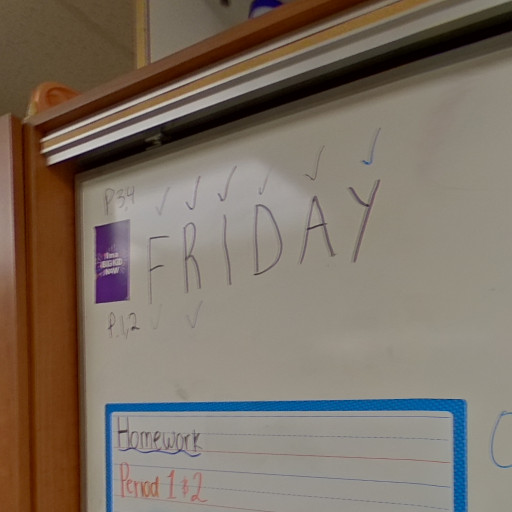 P 3,4 ✓ ✓ ✓ ✓ ✓ ✓
FRIDAY
P. 1, 2 ✓ ✓
Homework
Period 1 & 2